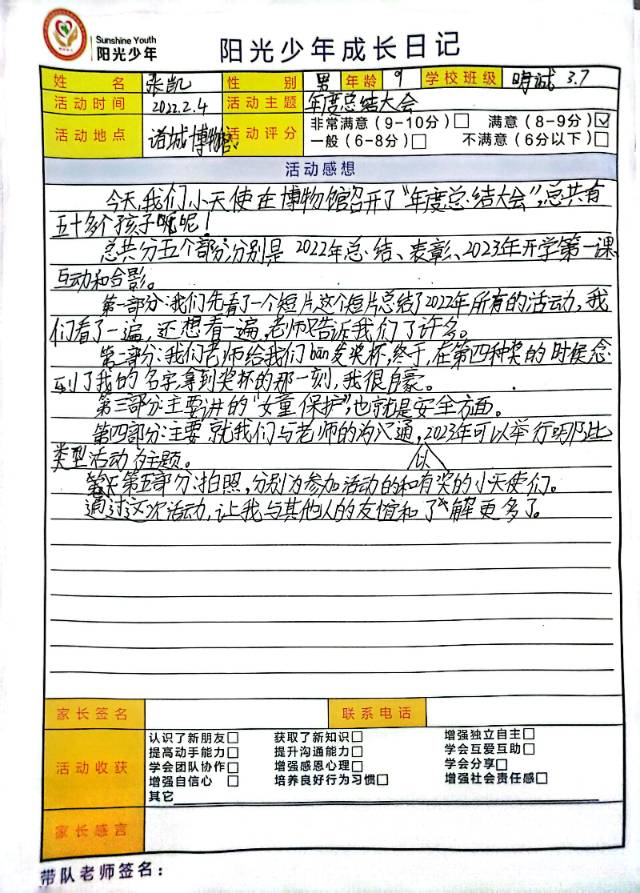 Sunshine Youth
阳光少年
阳光少年成长日记
姓名 张凯 性别 男 年龄 9 学校班级 明诚 3.7
活动时间 2022.2.4 活动主题 年度总结大会
活动地点 诸城博物馆 活动评分 非常满意(9-10分)□ 满意(8-9分)☑
一般(6-8分)□ 不满意(6分以下)□
活动感想
今天,我们小天使在博物馆召开了“年度总结大会”,总共有
五十多个孩子呢!
总共分五个部分,分别是2022年总结、表彰、2023年开学第一课
互动和合影。
第一部分:我们先看了一个短片,这个短片总结了2022年所有的活动,我
们看了一遍,还想看一遍,老师又告诉我们了许多。
第二部分:我们老师给我们bān发奖杯,终于,在第四种奖的时候念
到了我的名字,拿到奖杯的那一刻,我很自豪。
第三部分:主要讲的“女童保护”,也就是安全方面。
第四部分:主要就我们与老师的沟通,2023年可以举行哪些
类型活动为主题。
第五部分:拍照,分别为参加活动的和有奖的小天使们。
通过这次活动,让我与其他人的友谊和了解更多了。
家长签名 联系电话
活动收获
认识了新朋友□ 获取了新知识□ 增强独立自主□
提高动手能力□ 提升沟通能力□ 学会互爱互助□
学会团队协作□ 增强感恩心理□ 学会分享□
增强自信心□ 培养良好行为习惯□ 增强社会责任感□
其它
家长感言
带队老师签名: